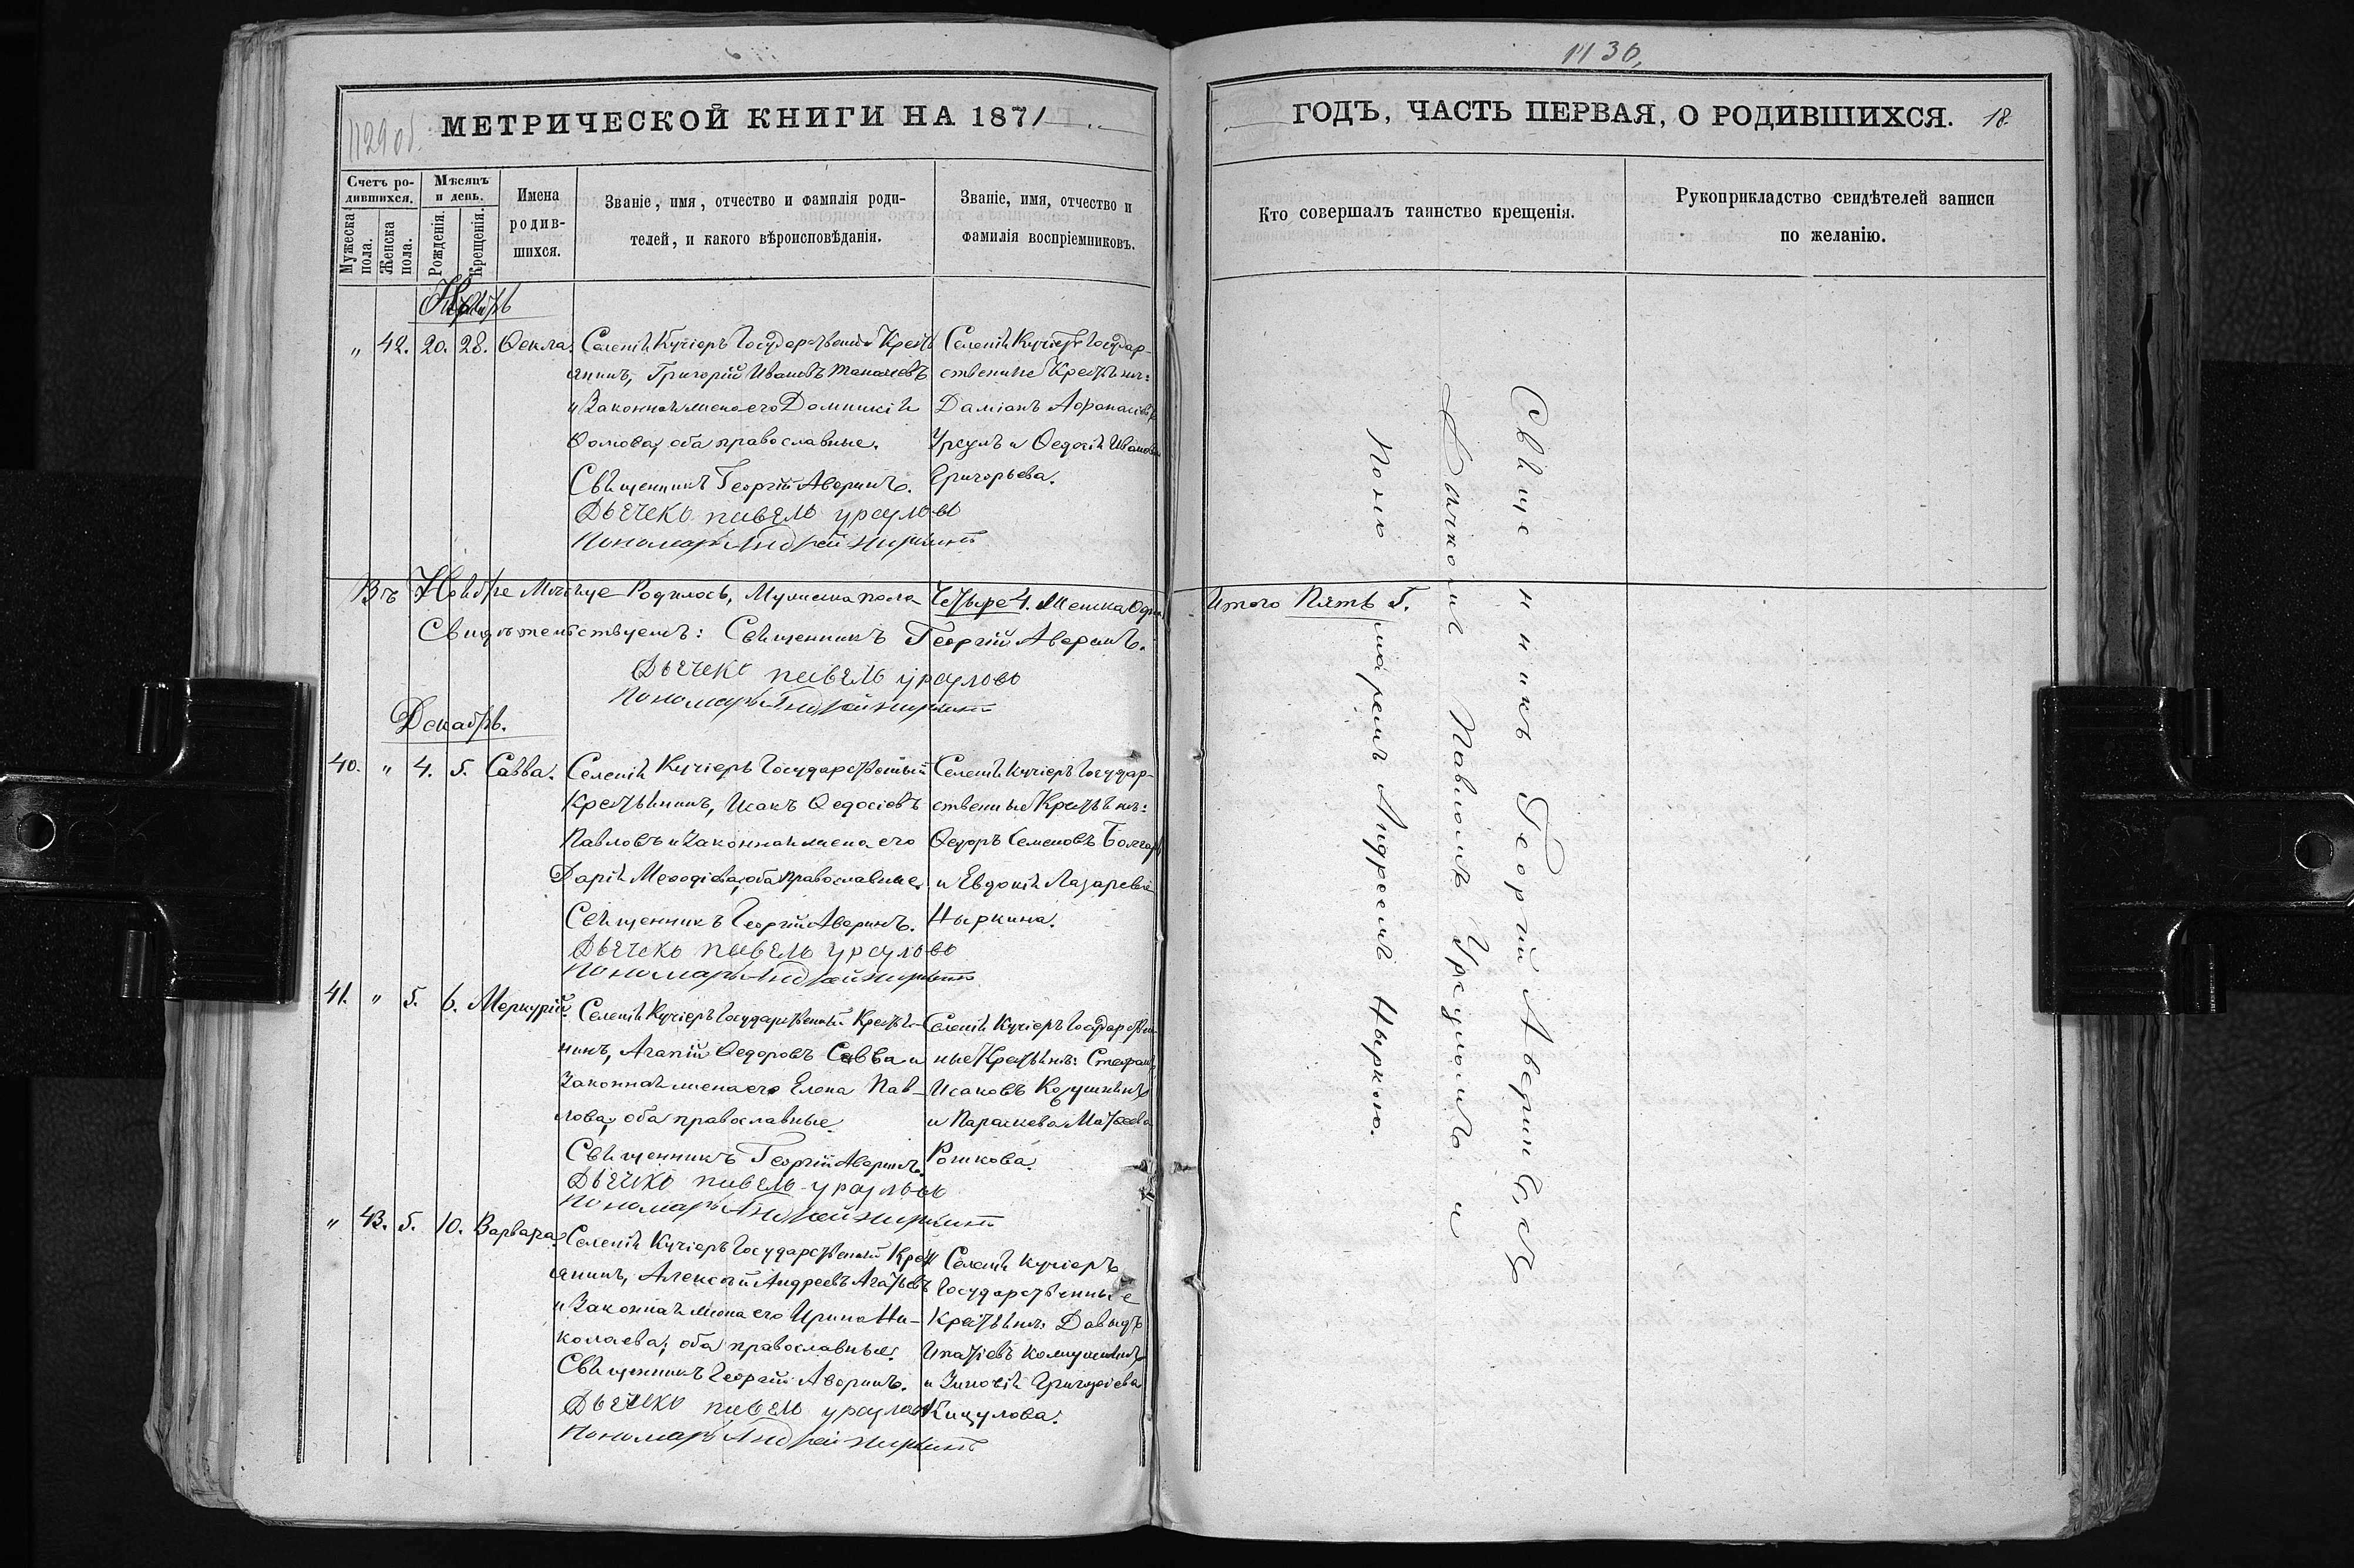 1130,
11290б.
МЕТРИЧЕСКОЙ КНИГИ НА 1871
ГОДЪ, ЧАСТЬ ПЕРВАЯ, О РОДИВШИХСЯ. 18.
Счетъ ро-
дившихся.
Мужеска
пола.
Женска
пола.
Мѣсяцъ
и день.
Рожденія.
Крещенія.
Имена
родив-
шихся.
Званіе, имя, отчество и фамилія роди-
телей, и какого вѣроисповѣданія.
Званіе, имя, отчество и
фамилія воспріемниковъ.
Кто совершалъ таинство крещенія.
Рукоприкладство свидѣтелей записи
по желанію.
Ноябрь
" 42. 20. 28. Ѳекла.
Селенія Кучіеръ Государственный Крест
янинъ, Григорій Ивановъ
и Законная жена его Домникія
Ѳомова, оба православные.
Священникъ Георгій Аверинъ.
Дьячекъ Павелъ Урсулов
Пономарь Андрей Ныркинъ
Селенія Кучіеръ Государ-
ственные Крестьяне:
Даміанъ Аѳанасіевъ
Урсулъ и Ѳедосія Иванова
Григорьева.
Въ Ноябре Месяце Родилось, Мужеска пола Четыре 4. Женска Одна
Итого Пять 5.
Свидѣтельствуемъ: Священникъ Георгій Аверинъ.
Дьячекъ Павелъ Урсулов
Пономарь Андрей Ныркинъ
Декабрь.
40. " 4. 5. Савва.
Селенія Кучіеръ Государственный
Крестьянинъ, Исакъ Ѳедосіевъ
Павловъ и Законная жена его
Дарія Меѳодіева, оба православные.
Священникъ Георгій Аверинъ.
Дьячекъ Павелъ Урсулов
Пономарь Андрей Ныркинъ
Селенія Кучіеръ Государ-
ственные Крестьяне:
Ѳедоръ Семеновъ Болгаръ
и Евдокія Лазарева
Ныркина.
41. " 5. 6. Меркурій.
Селенія Кучіеръ Государственный Крестья-
нинъ, Агапій Ѳедоровъ Савва и
Законная жена его Елена Пав-
лова, оба православные.
Священникъ Георгій Аверинъ.
Дьячекъ Павелъ Урсулов
Пономарь Андрей Ныркинъ
Селенія Кучіеръ Государствен-
ные Крестьяне: Стефанъ
Исаковъ
и Параскева Матѳеева
Рошкова.
" 43. 5. 10. Варвара.
Селенія Кучіеръ Государственный Крест
янинъ, Алексѣй Андреевъ Агатьевъ
и Законная жена его Ирина Ни-
колаева, оба православные.
Священникъ Георгій Аверинъ.
Дьячекъ Павелъ Урсулов
Пономарь Андрей Ныркинъ
Селенія Кучіеръ
Государственные
Крестьяне: Давыдъ
Игнатіевъ
и Зиновія Григоріева
Кицулова.
Священникъ Георгій Аверинъ съ
Дьячкомъ Павломъ Урсуломъ и
Пономаремъ Андреемъ Ныркою.